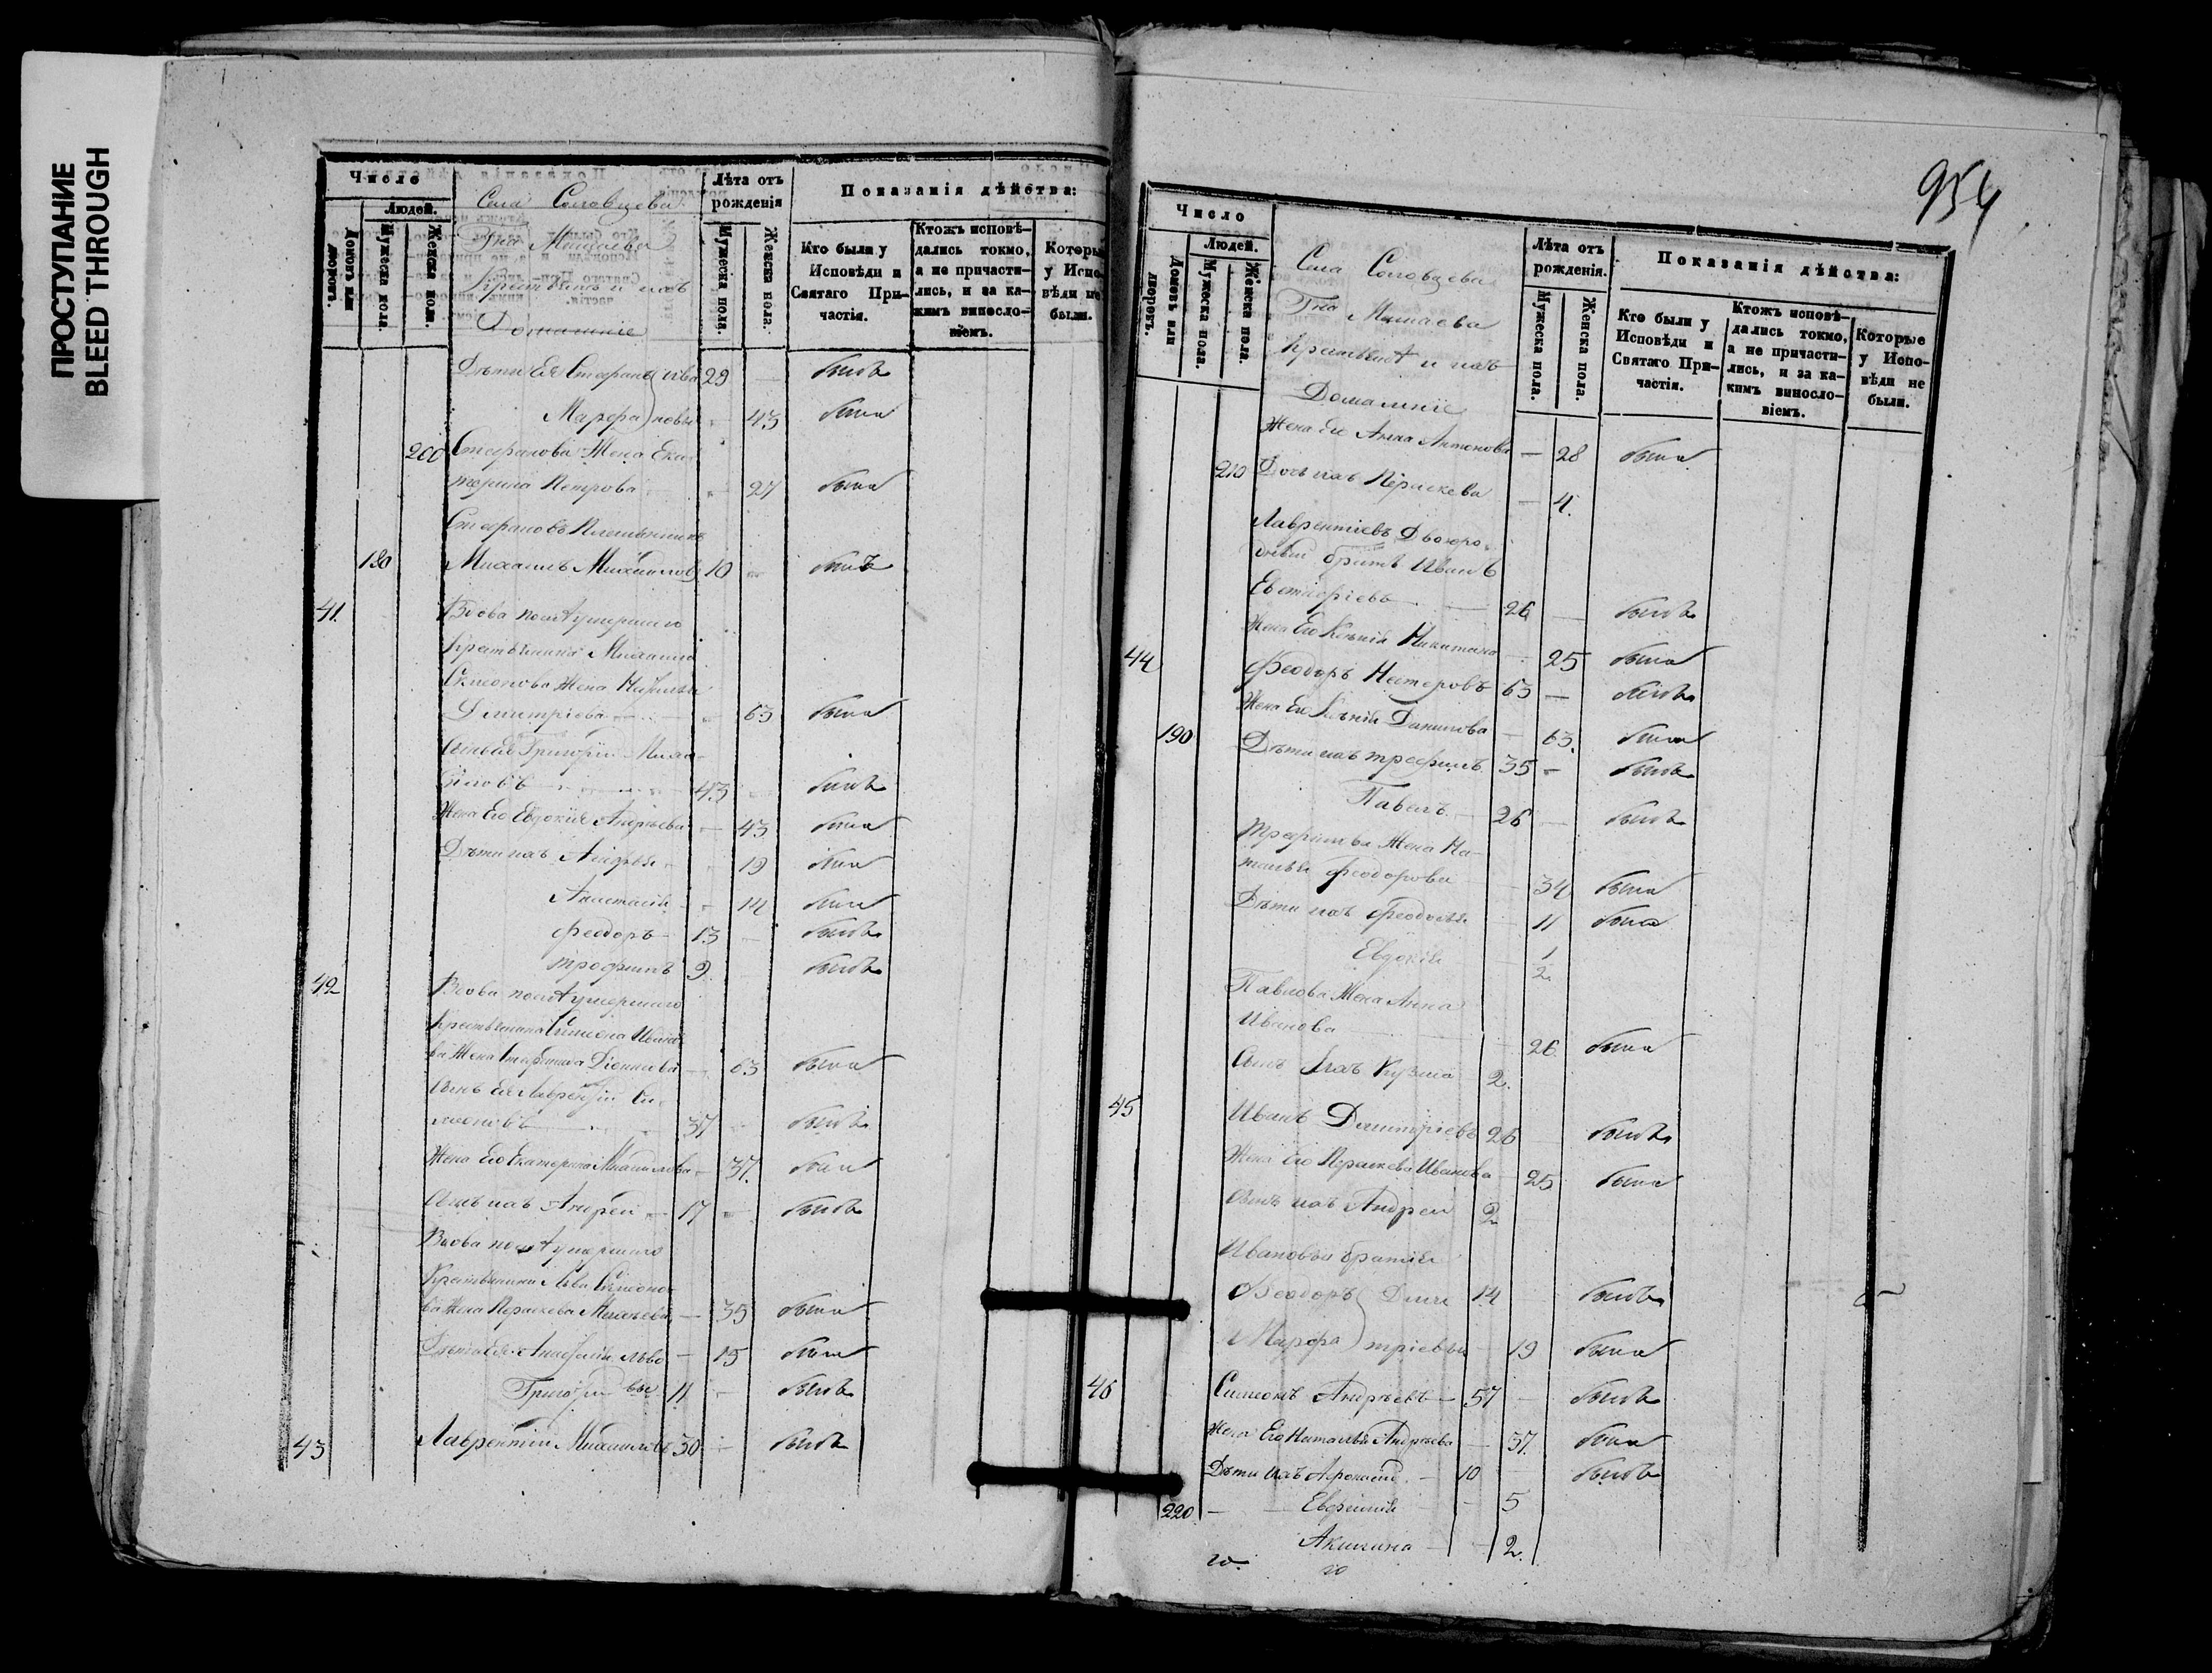 ПРОСТУПАНИЕ
BLEED THROUGH
954
Число
Домовъ или дворовъ.
Людей.
Мужеска пола.
Женска пола.
Села Соловцева
Гна Мамаева
Крестьянѣ и ихъ
Домашніе
Лѣта отъ рожденія
Мужеска пола.
Женска пола.
Показанія дѣйства:
Кто были у Исповѣди и Святаго Причастія.
Ктожъ исповѣдались токмо, а не причастились, и за какимъ винословіемъ.
Которые у Исповѣди не были.
Дѣти Ея Стефанъ Ива 29 — былъ
Марфа новы — 43 была
200 Стефанова Жена Ека-
терина Петрова — 27 была
Стефановъ Племянникъ
180 Михаилъ Михаиловъ 10 — былъ
41. Вдова послѣ умершаго
Крестьянина Михаила
Симеонова Жена Наталья
Димитріева — 63 была
Сынъ Ея Григорій Миха-
иловъ 43 — былъ
Жена Его Евдокія Андреева — 43 была
Дѣти ихъ — 19 была
Анастасія — 14 была
Феодоръ 13 — былъ
Трофимъ 9 — былъ
42 Вдова послѣ умершаго
Крестьянина Симеона Ивано-
ва Жена Стефанида — 63 была
Сынъ Ея Лаврентій Си-
меоновъ 37 — былъ
Жена Его Екатерина Михаилова — 37. была
Сынъ ихъ Андрей 17 — былъ
Вдова послѣ умершаго
Крестьянина Льва Симеоно-
ва Жена Параскева — 35 была
Дѣти Ея Анастасія Льво — 15 была
Григорій вы 11 — былъ
43 Лаврентій Михаиловъ 30 — былъ
Число
Домовъ или дворовъ.
Людей.
Мужеска пола.
Женска пола.
Села Соловцева
Гна Мамаева
Крестьянѣ и ихъ
Домашніе
Лѣта отъ рожденія.
Мужеска пола.
Женска пола.
Показанія дѣйства:
Кто были у Исповѣди и Святаго Причастія.
Ктожъ исповѣдались токмо, а не причастились, и за какимъ винословіемъ.
Которые у Исповѣди не были.
Жена Его Анна Антонова — 28 была
210 Дочь ихъ Параскева — 4.
Лаврентіевъ Двоюро-
дный братъ Иванъ
Евстафіевъ 26 — былъ
Жена Его Ксенія Никитина — 25 была
44 Феодоръ Нестеровъ 63 — былъ
Жена Его Ксенія Данилова — 63. была
190 Дѣти ихъ Трофимъ 35 — былъ
Павелъ 26 — былъ
Трофимова Жена На-
талья Феодорова — 34 была
Дѣти ихъ Феодосья 11 была
Евдокія 1/2
Павлова Жена Анна
Иванова 26 была
Сынъ ихъ Кузма 2.
45 Иванъ Димитріевъ 26 — былъ
Жена Его Параскева Иванова 25 была
Сынъ ихъ Андрей 2
Ивановы братья
Феодоръ Дими 14 былъ
Марфа тріевы 19 была
46 Симеонъ Андреевъ 57 — былъ
Жена Его Наталья Андреева — 57. была
Дѣти ихъ Афанасій 10 — былъ
220 — Евфимія — 5
Акилина — 2.